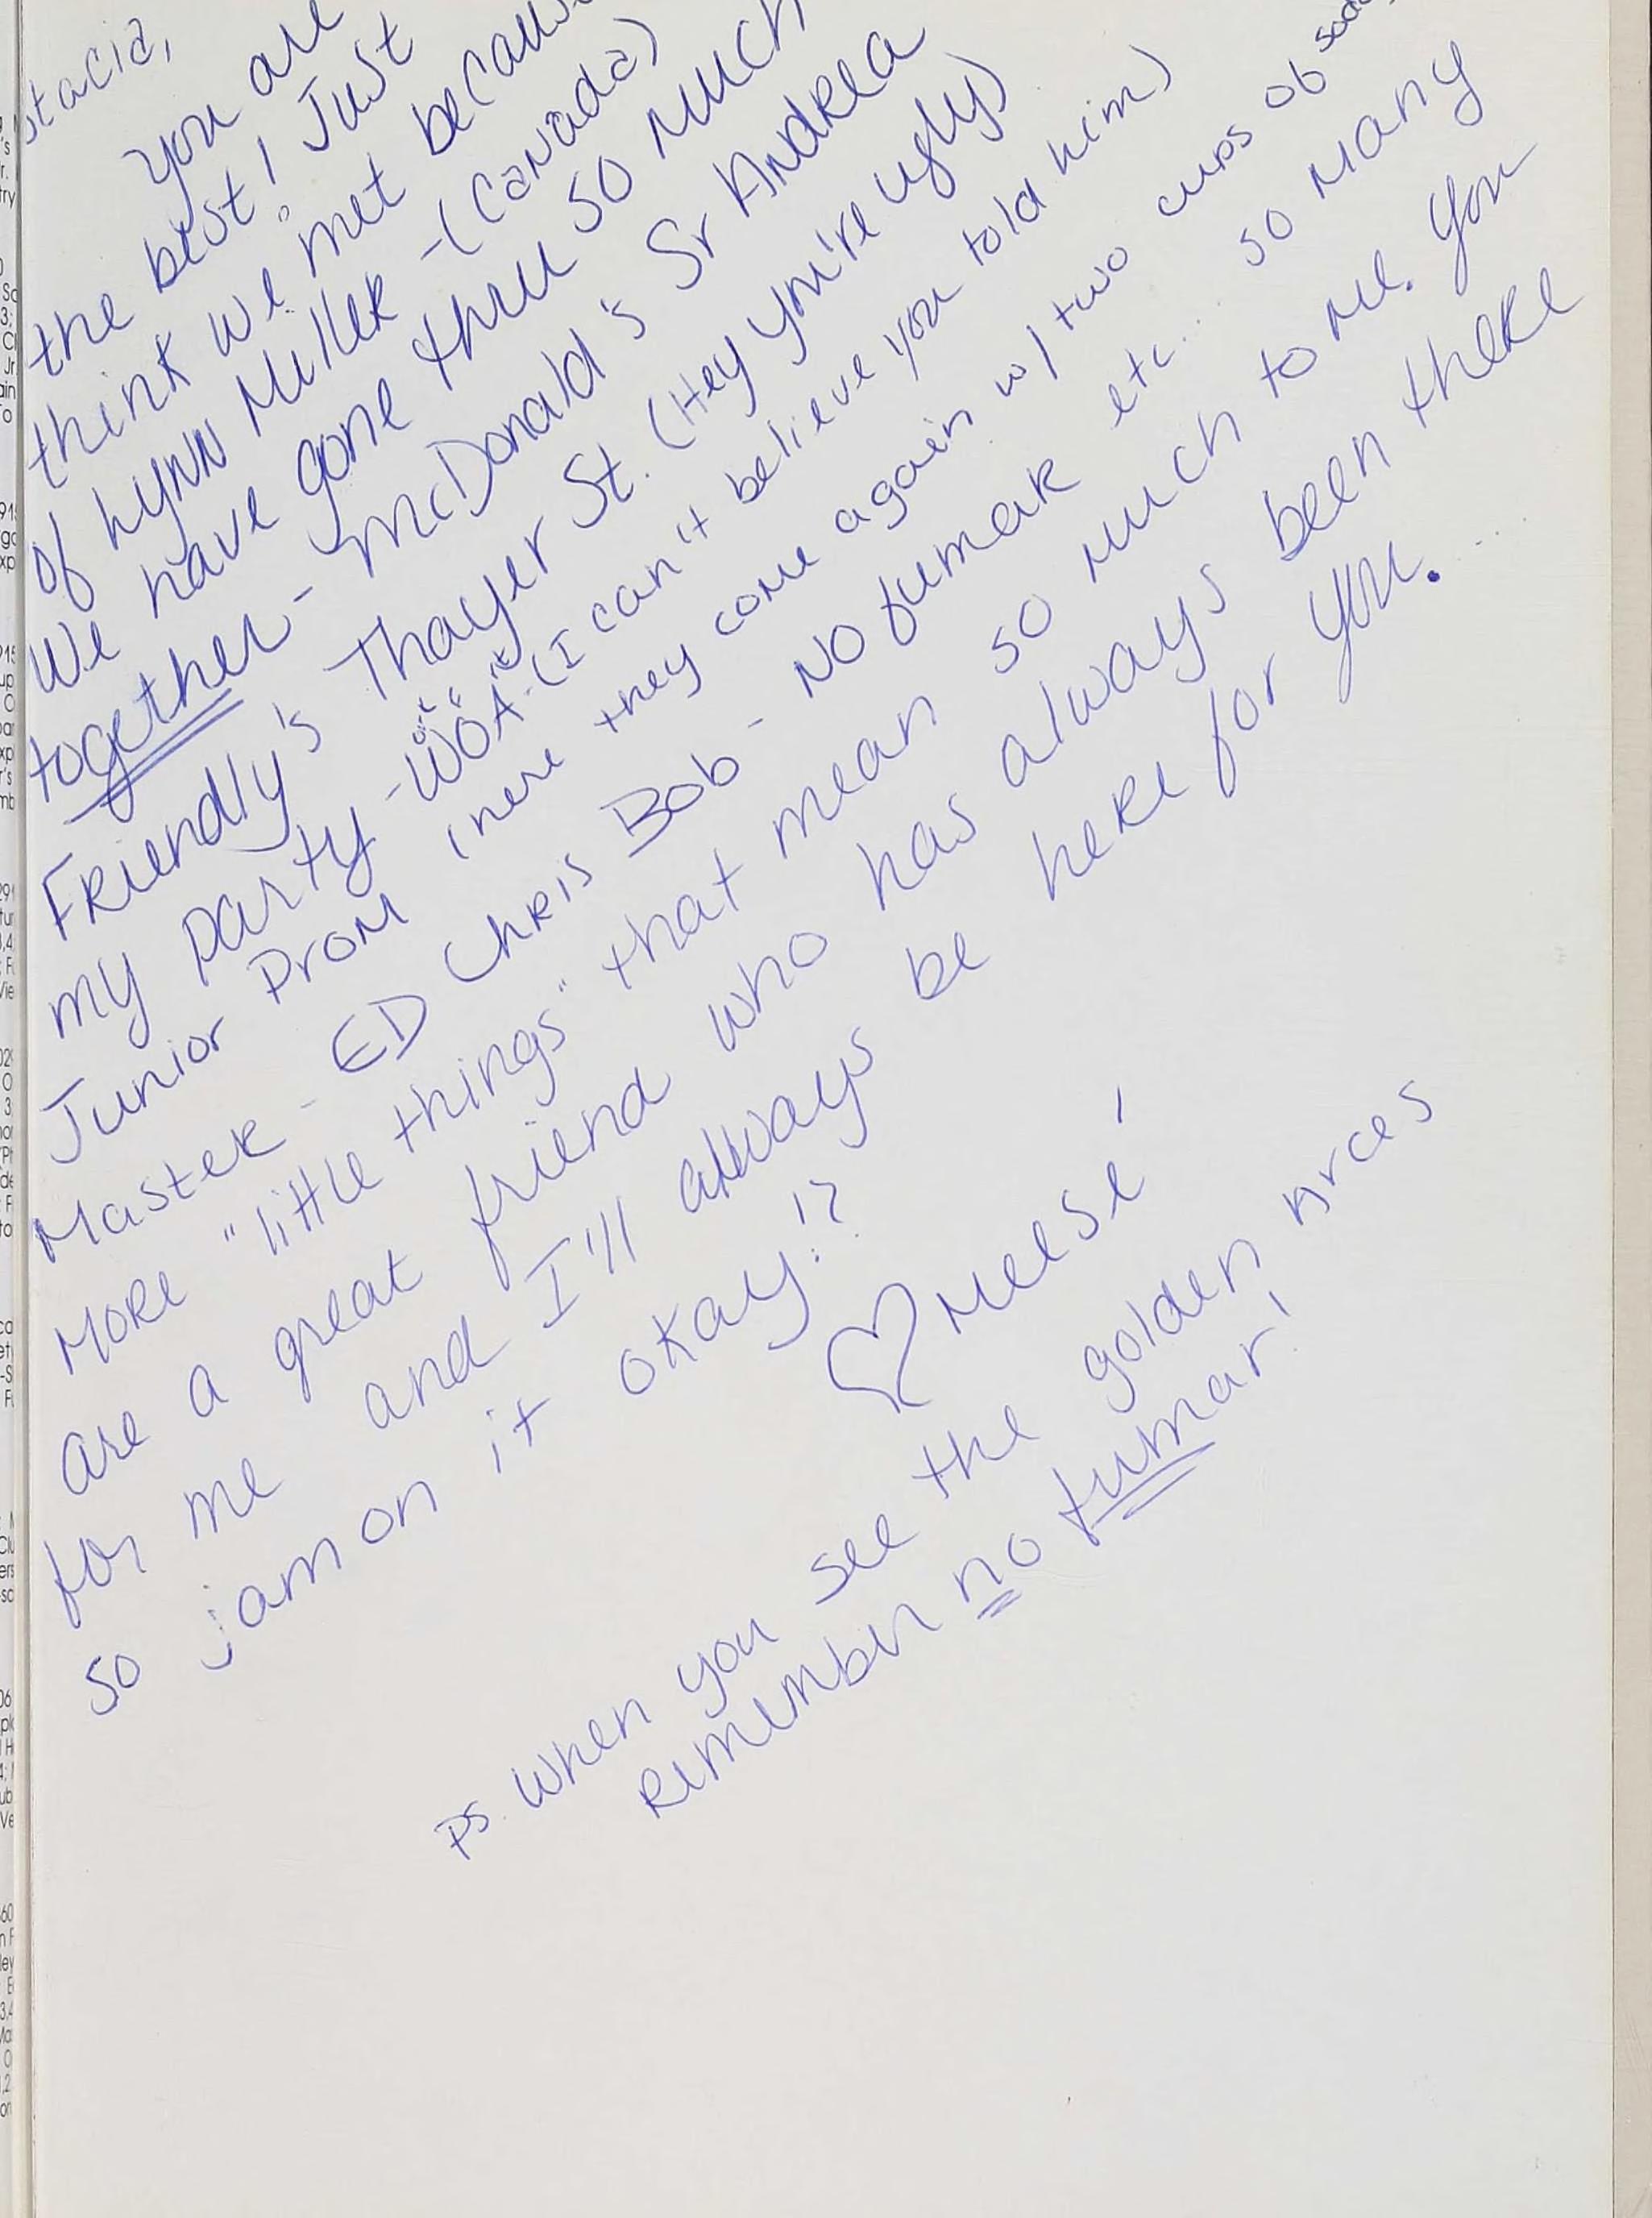 stacia,
you are
the best! Just
think we met becaus
of Lynn Miller - (Canada)
We have gone thru so much
together - McDonald's Sr Andrea
Friendly's Thayer St. (Hey you're ugly)
my party - WOA - (I can't believe you told him)
Junior Prom (here they come again w/ two cups ob soda
Master - ED Chris Bob - No fumar etc... so many
more "little things" that mean so much to me. You
are a great friend who has always been there
for me and I'll always be here for you. ...
so jam on it okay!?
♡ Neesé
PS. When you see the golden arces
remember no fumar!